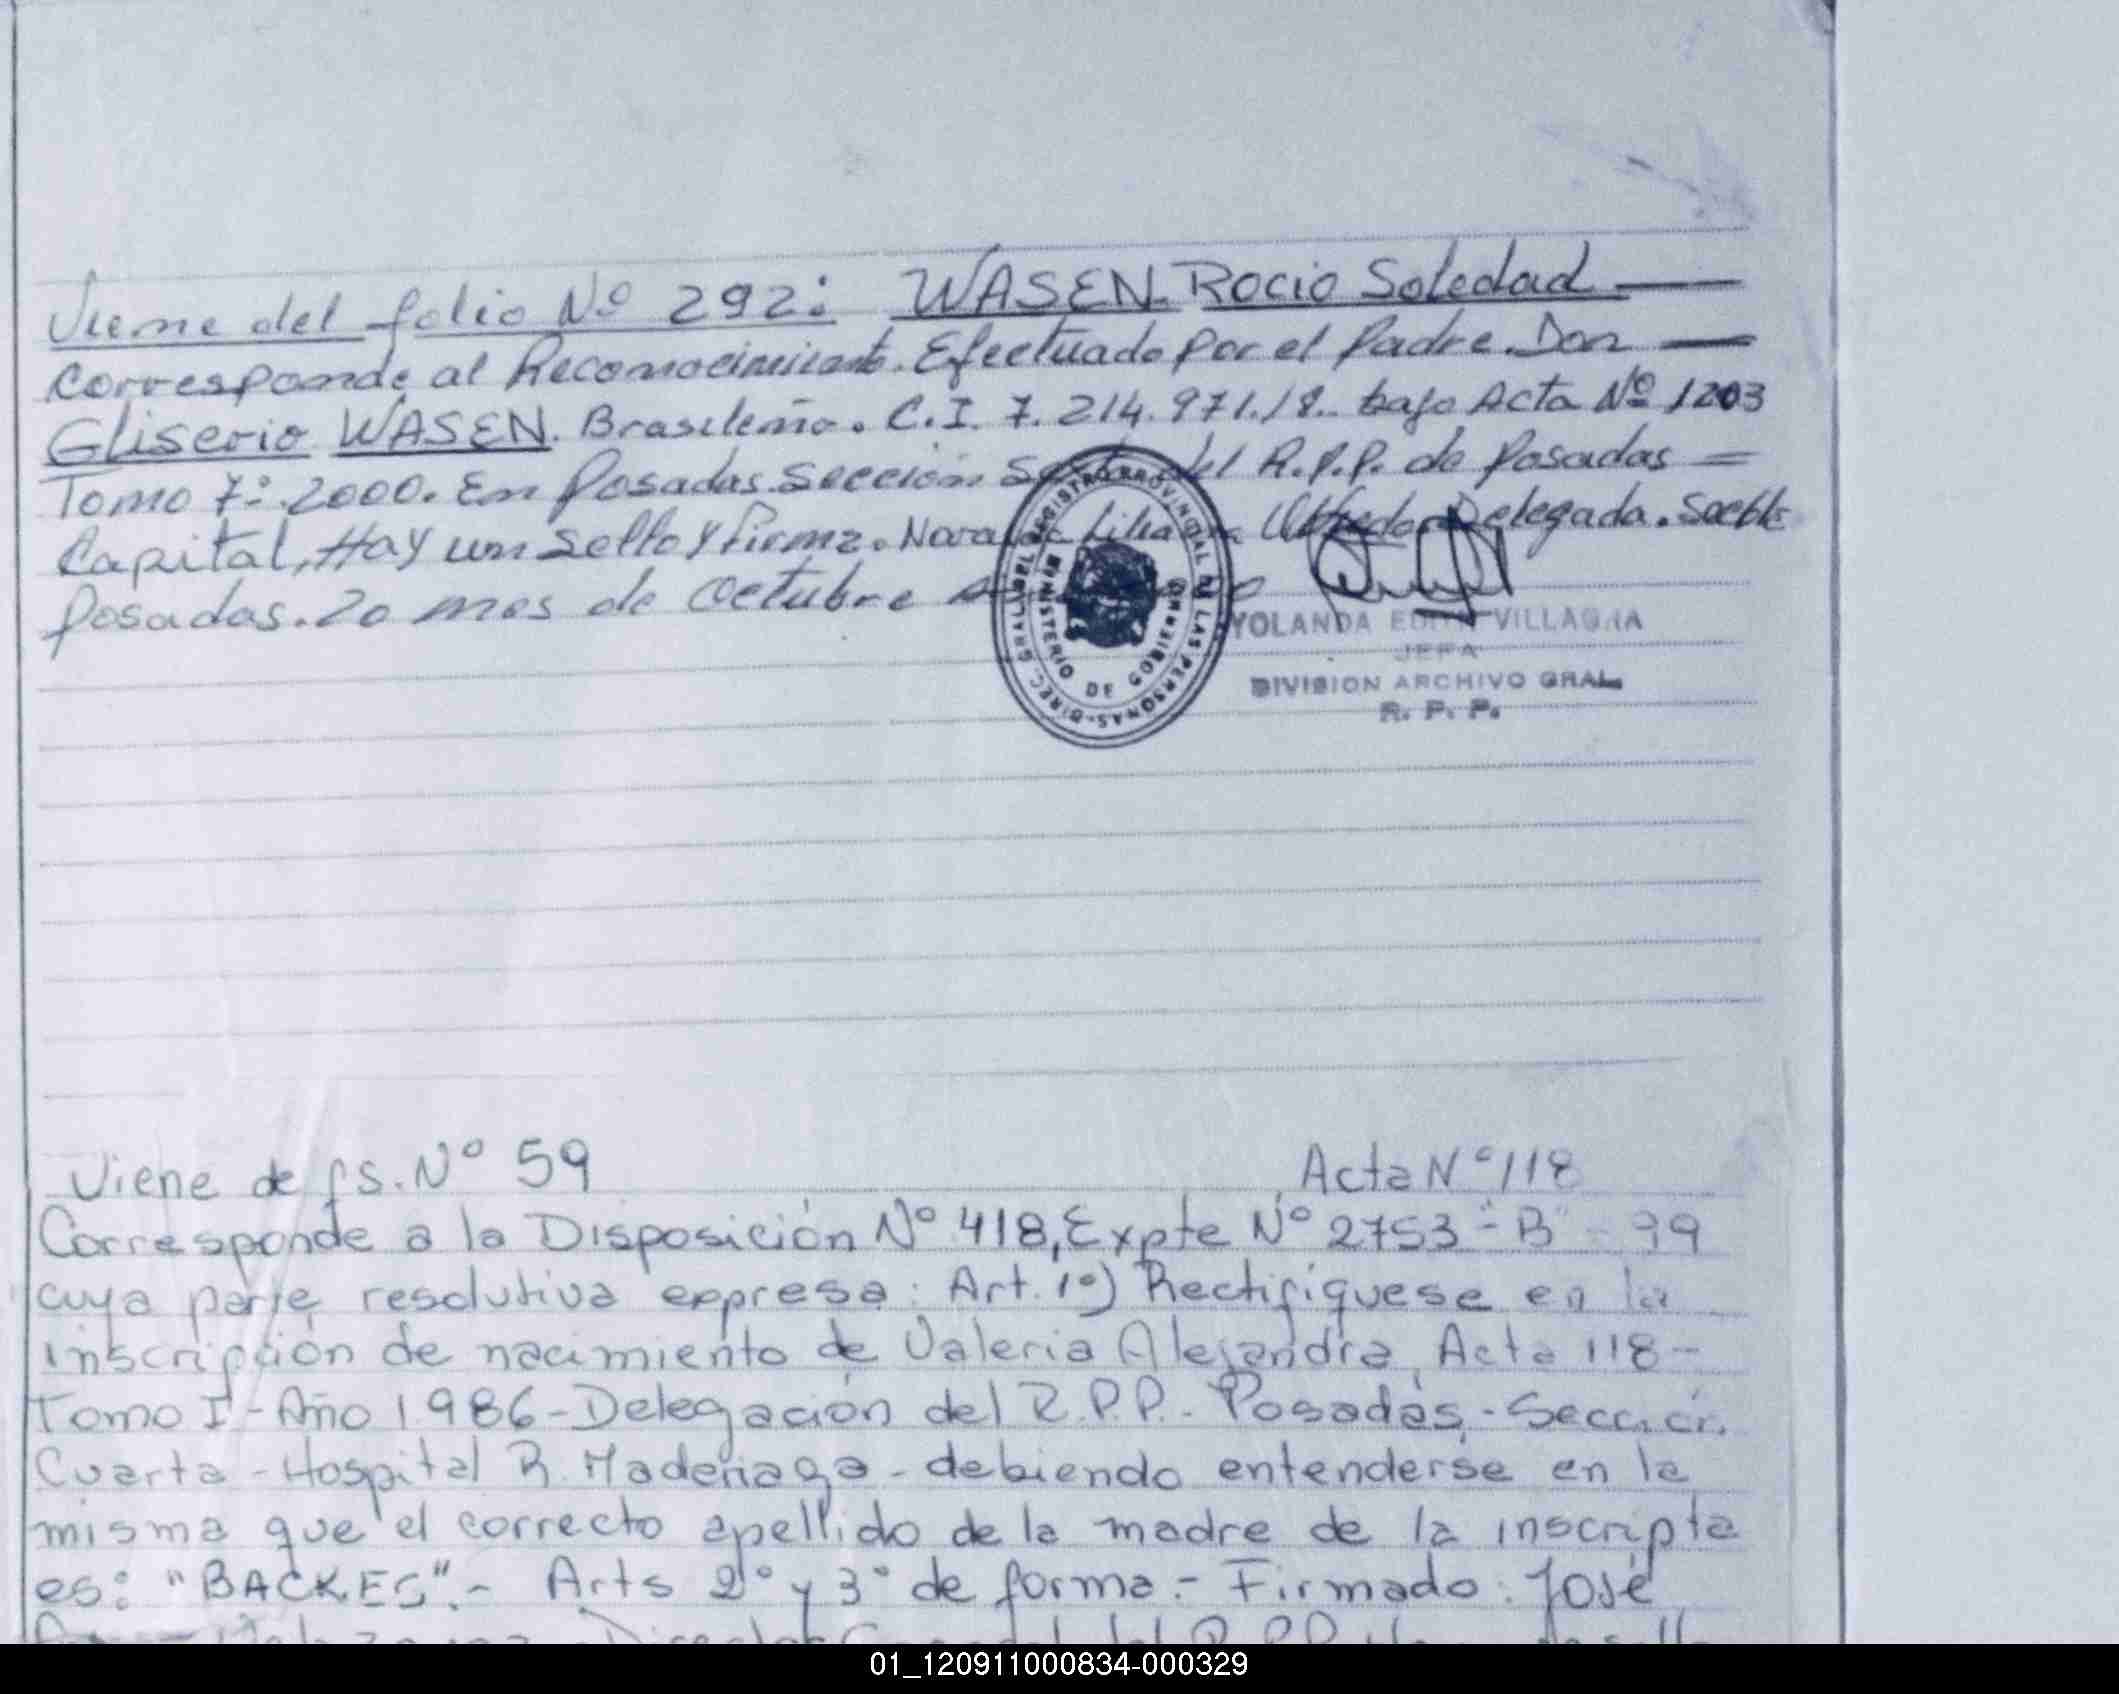 Viene del folio Nº 292: WASEN Rocio Soledad
Corresponde al Reconocimiento. Efectuado por el Padre. Don
Gliserio WASEN. Brasileño. C.I. 7.214.971.18.. bajo Acta Nº 1203
Tomo 7º. 2000. En Posadas. Sección del R.P.P. de Posadas =
Capital, Hay un sello y firma. Delegada.
Posadas. 20 mes de Octubre
DIREC. GRAL. DEL REGISTRO PROVINCIAL DE LAS PERSONAS
MINISTERIO DE GOBIERNO
YOLANDA EDITH VILLAGRA
JEFA
DIVISION ARCHIVO GRAL.
R. P. P.
Viene de fs. Nº 59 Acta Nº 118
Corresponde a la Disposición Nº 418, Expte Nº 2753-"B"-99
cuya parte resolutiva expresa: Art. 1º) Rectifíquese en la
inscripción de nacimiento de Valeria Alejandra, Acta 118-
Tomo I-Año 1.986-Delegación del R.P.P.-Posadas,-Sección
Cuarta-Hospital R. Madariaga-debiendo entenderse en la
misma que el correcto apellido de la madre de la inscripta
es: "BACKES".- Arts 2º y 3º de forma.- Firmado: José
01_120911000834-000329